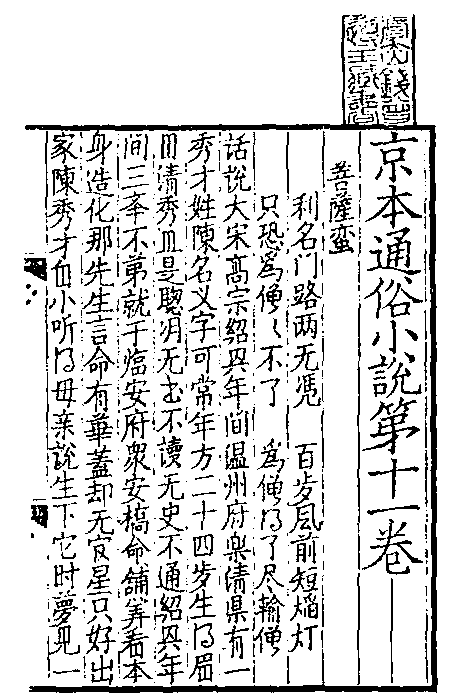 虞山錢曾
遵王藏書
京本通俗小說第十一卷
菩薩蠻
利名门路两无凭　百岁风前短焰灯
只恐為僧〻不了　為僧得了尽输僧
話說大宋高宗紹兴年间温州府樂清県有一
秀才姓陳名义字可常年方二十四岁生得眉
目清秀且是聪明无书不讀无史不通紹兴年
间三举不第就于临安府衆安橋命舖算看本
身造化那先生言命有華盖却无官星只好出
家陳秀才自小听得母亲說生下它时夢见一